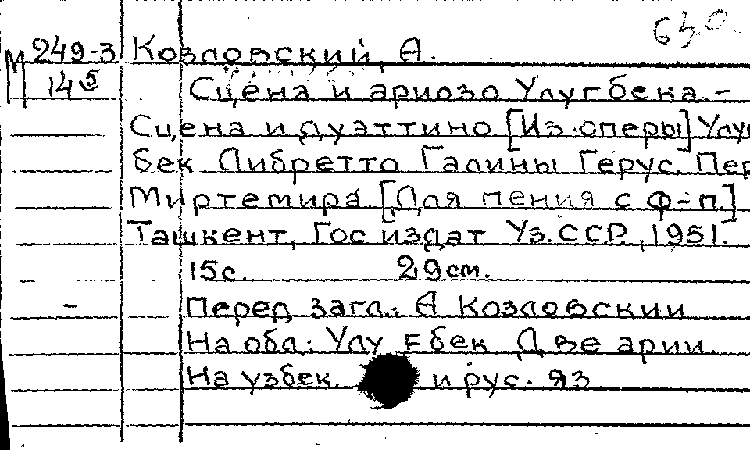 630.
М 249-3 Козловский, А.
14 5 Сцена и ариозо Улугбека. -
Сцена и дуэттино [Из оперы] Улуг
бек Либретто Галины Герус. Пер
Миртемира [Для пения с ф-п.]
Ташкент, Гос издат Уз.ССР, 1951.
15с. 29см.
- Перед загл.: А Козловский
На обл: Улугбек Две арии.
На узбек. и рус. яз